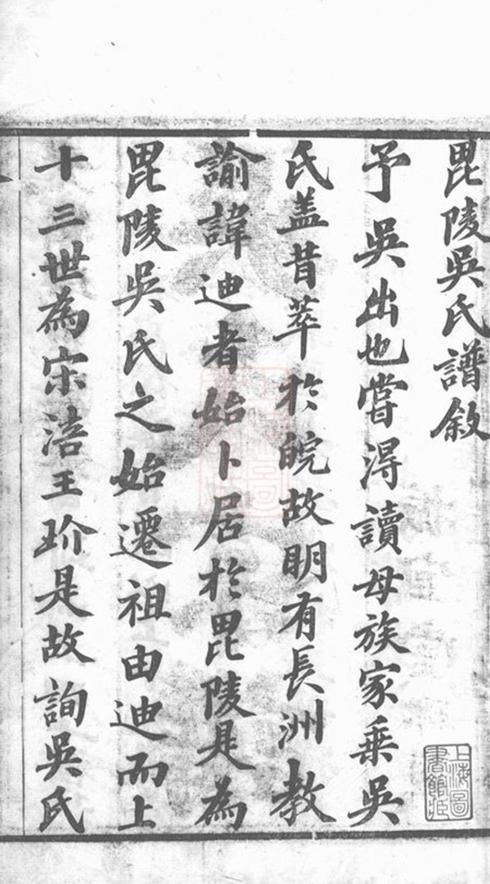 毘陵吳氏譜敘
予吳出也嘗淂讀母族家乘吳
氏盖昔萃於皖故明有長洲教
諭諱迪者始卜居於毘陵是為
毘陵吳氏之始遷祖由迪而上
十三世為宋涪王玠是故詢吳氏
上海圖書館藏